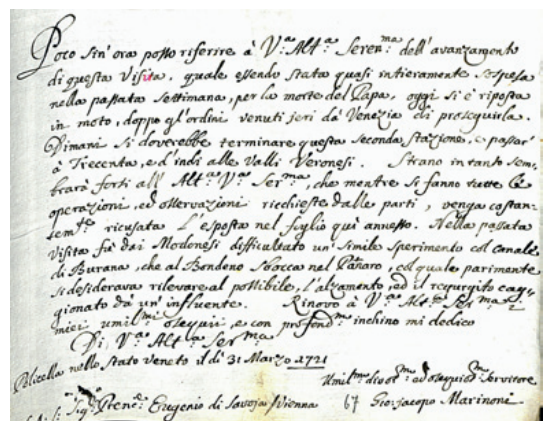 Poco sin' ora posso riferire à V:ª Alt:ª Seren:ma dell'avanzamento
di questa Visita, quale essendo stata quasi intieramente sospesa
nella passata settimana, per la morte del Papa, oggi si è riposta
in moto, doppo gl'ordini venuti jeri da Venezia di proseguirla.
Dimani si doverebbe terminare questa seconda stazione, e passar
à Trecenta, ed indi alle Valli Veronesi. Strano intanto sem-
brarà forsi all' Alt:ª V:ª Ser:ma, che mentre si fanno tutte le
operazioni, ed osservazioni richieste dalle parti, venga costan-
tem:te ricusata l'esposta nel foglio quì annesso. Nella passata
Visita fù dai Modonesi difficultato un' simile sperimento col canale
di Burana, che al Bondeno sbocca nel Panaro, col quale parimente
si desiderava rilevare al possibile, l'alzamento, ed il regurgito cag-
gionato da un' influente. Rinovo à V:ª Alt:ª Ser:ma i
miei umil:mi ossequii, e con profond:mo inchino mi dedico
Di V:ª Alt:ª Ser:ma
Policella nello Stato Veneto il dì 31 Marzo 1721
Umil:mo divot:mo ed ossequios:mo Servitore
Eugenio di Savoja Vienna 67 Gio: Jacopo Marinoni